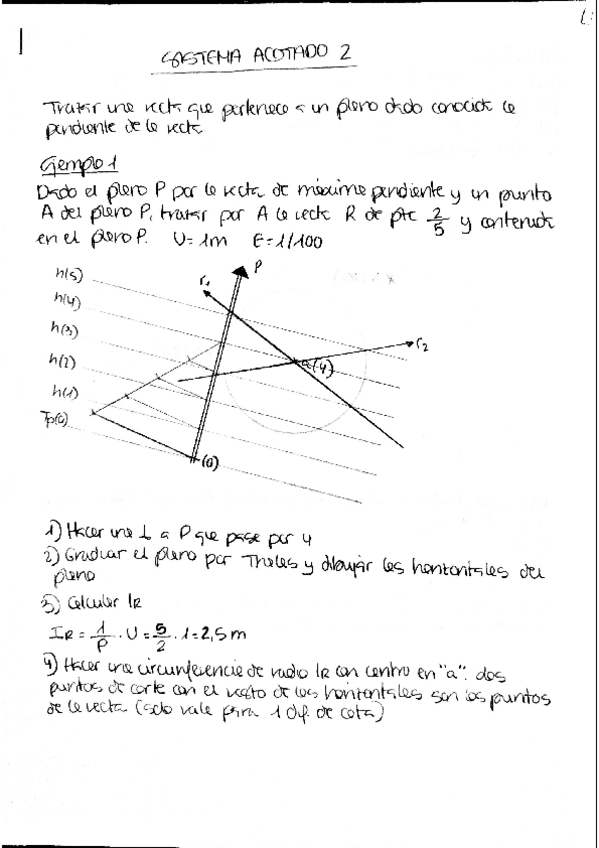 1
SISTEMA ACOTADO 2
Trazar una recta que pertenece a un plano dado conocida la
pendiente de la recta
Ejemplo 1
Dado el plano P por la recta de máxima pendiente y un punto
A del plano P, trazar por A la recta R de pte 2/5 y contenida
en el plano P. U=1m E=1/100
h(5)
h(4)
h(3)
h(2)
h(1)
Tp(0)
P
r1
r2
a(4)
(0)
1) Hacer una ⊥ a P que pase por 4
2) Graduar el plano por Thales y dibujar las horizontales del
plano
3) Calcular IR
IR = 1/P · U = 5/2 · 1 = 2,5 m
4) Hacer una circunferencia de radio IR con centro en "a". dos
puntos de corte con el resto de las horizontales son los puntos
de la recta (solo vale para 1 dif. de cota)